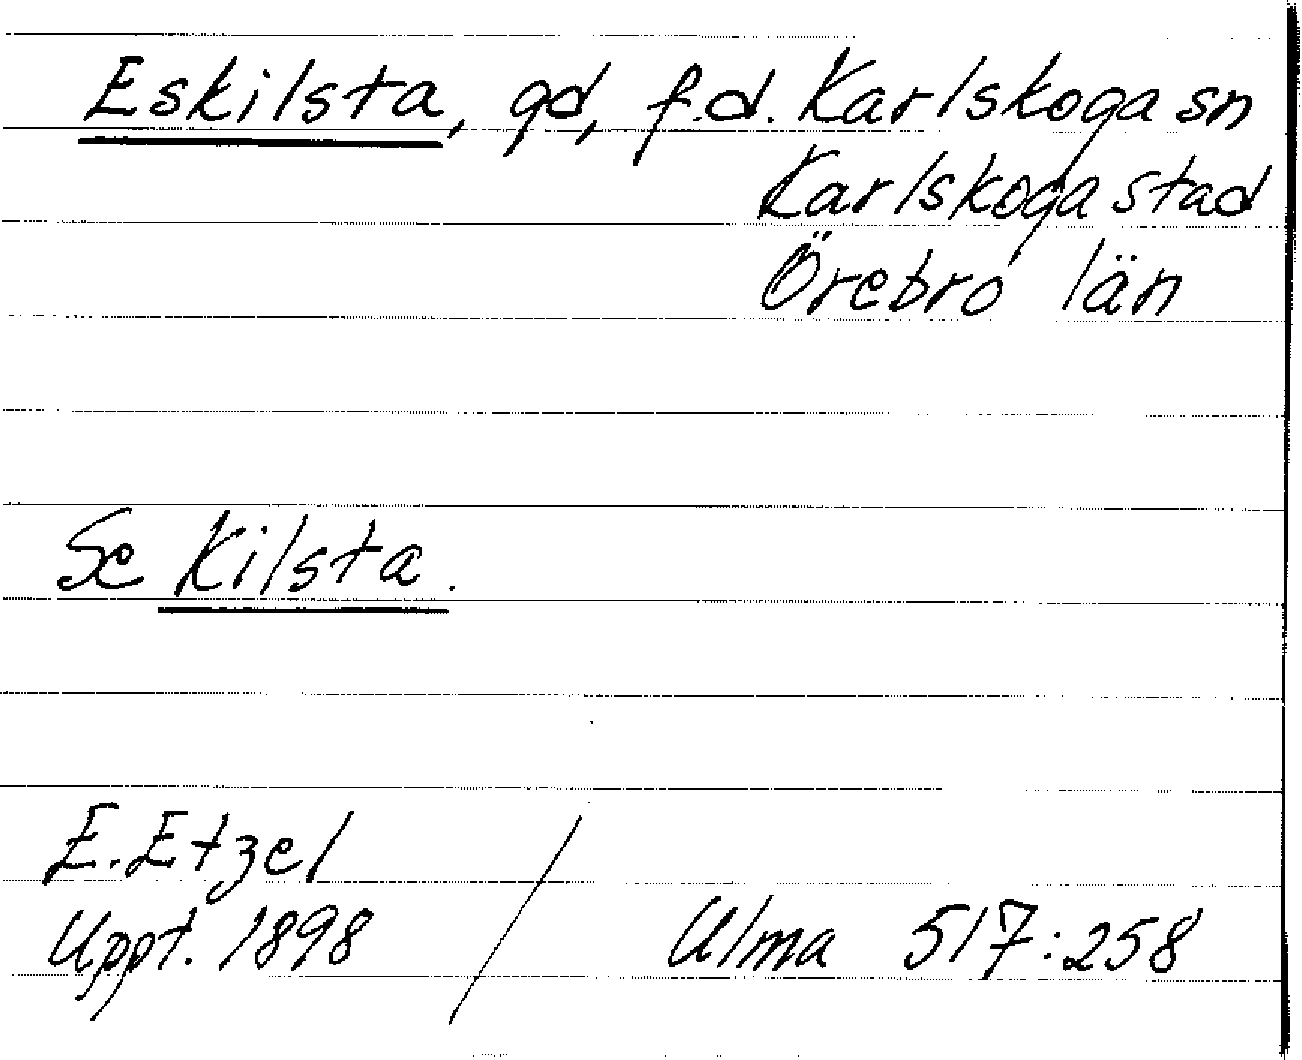 Eskilsta, gd, f.d. Karlskoga sn
Karlskoga stad
Örebro län
Se Kilsta.
E. Etzel
Uppt. 1898 / Ulma 517:258